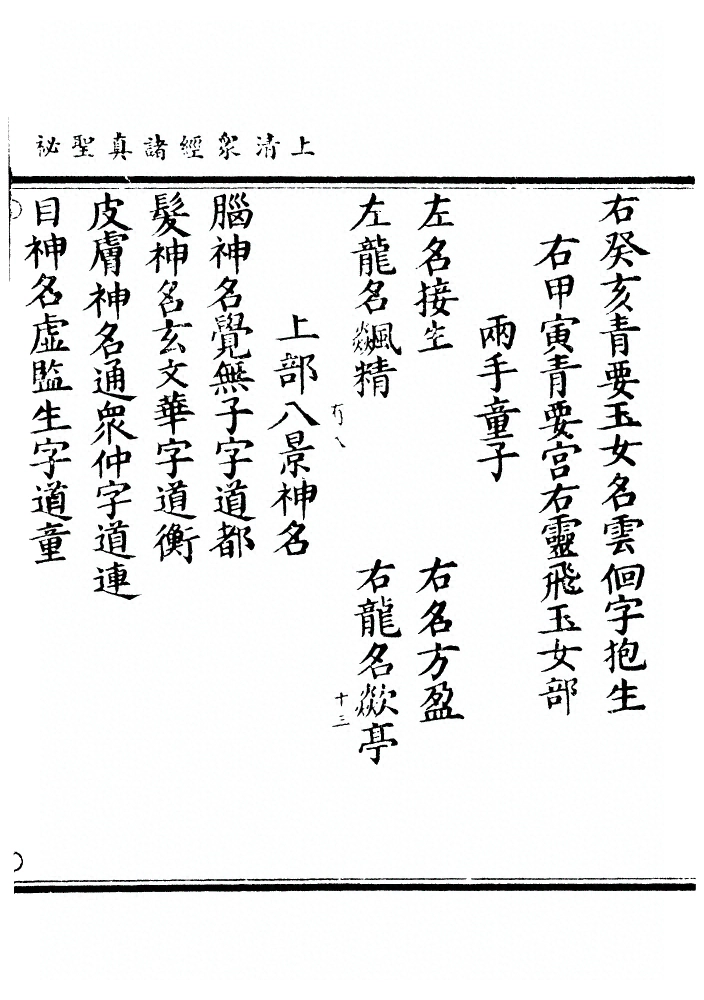 上清衆經諸真聖祕
右癸亥青要玉女名雲徊字抱生
右甲寅青要宮右靈飛玉女部
兩手童子
左名接生　右名方盈
左龍名飆精　右龍名歘亭
有八　十三
上部八景神名
腦神名覺無子字道都
髮神名玄文華字道衡
皮膚神名通衆仲字道連
目神名虛監生字道童